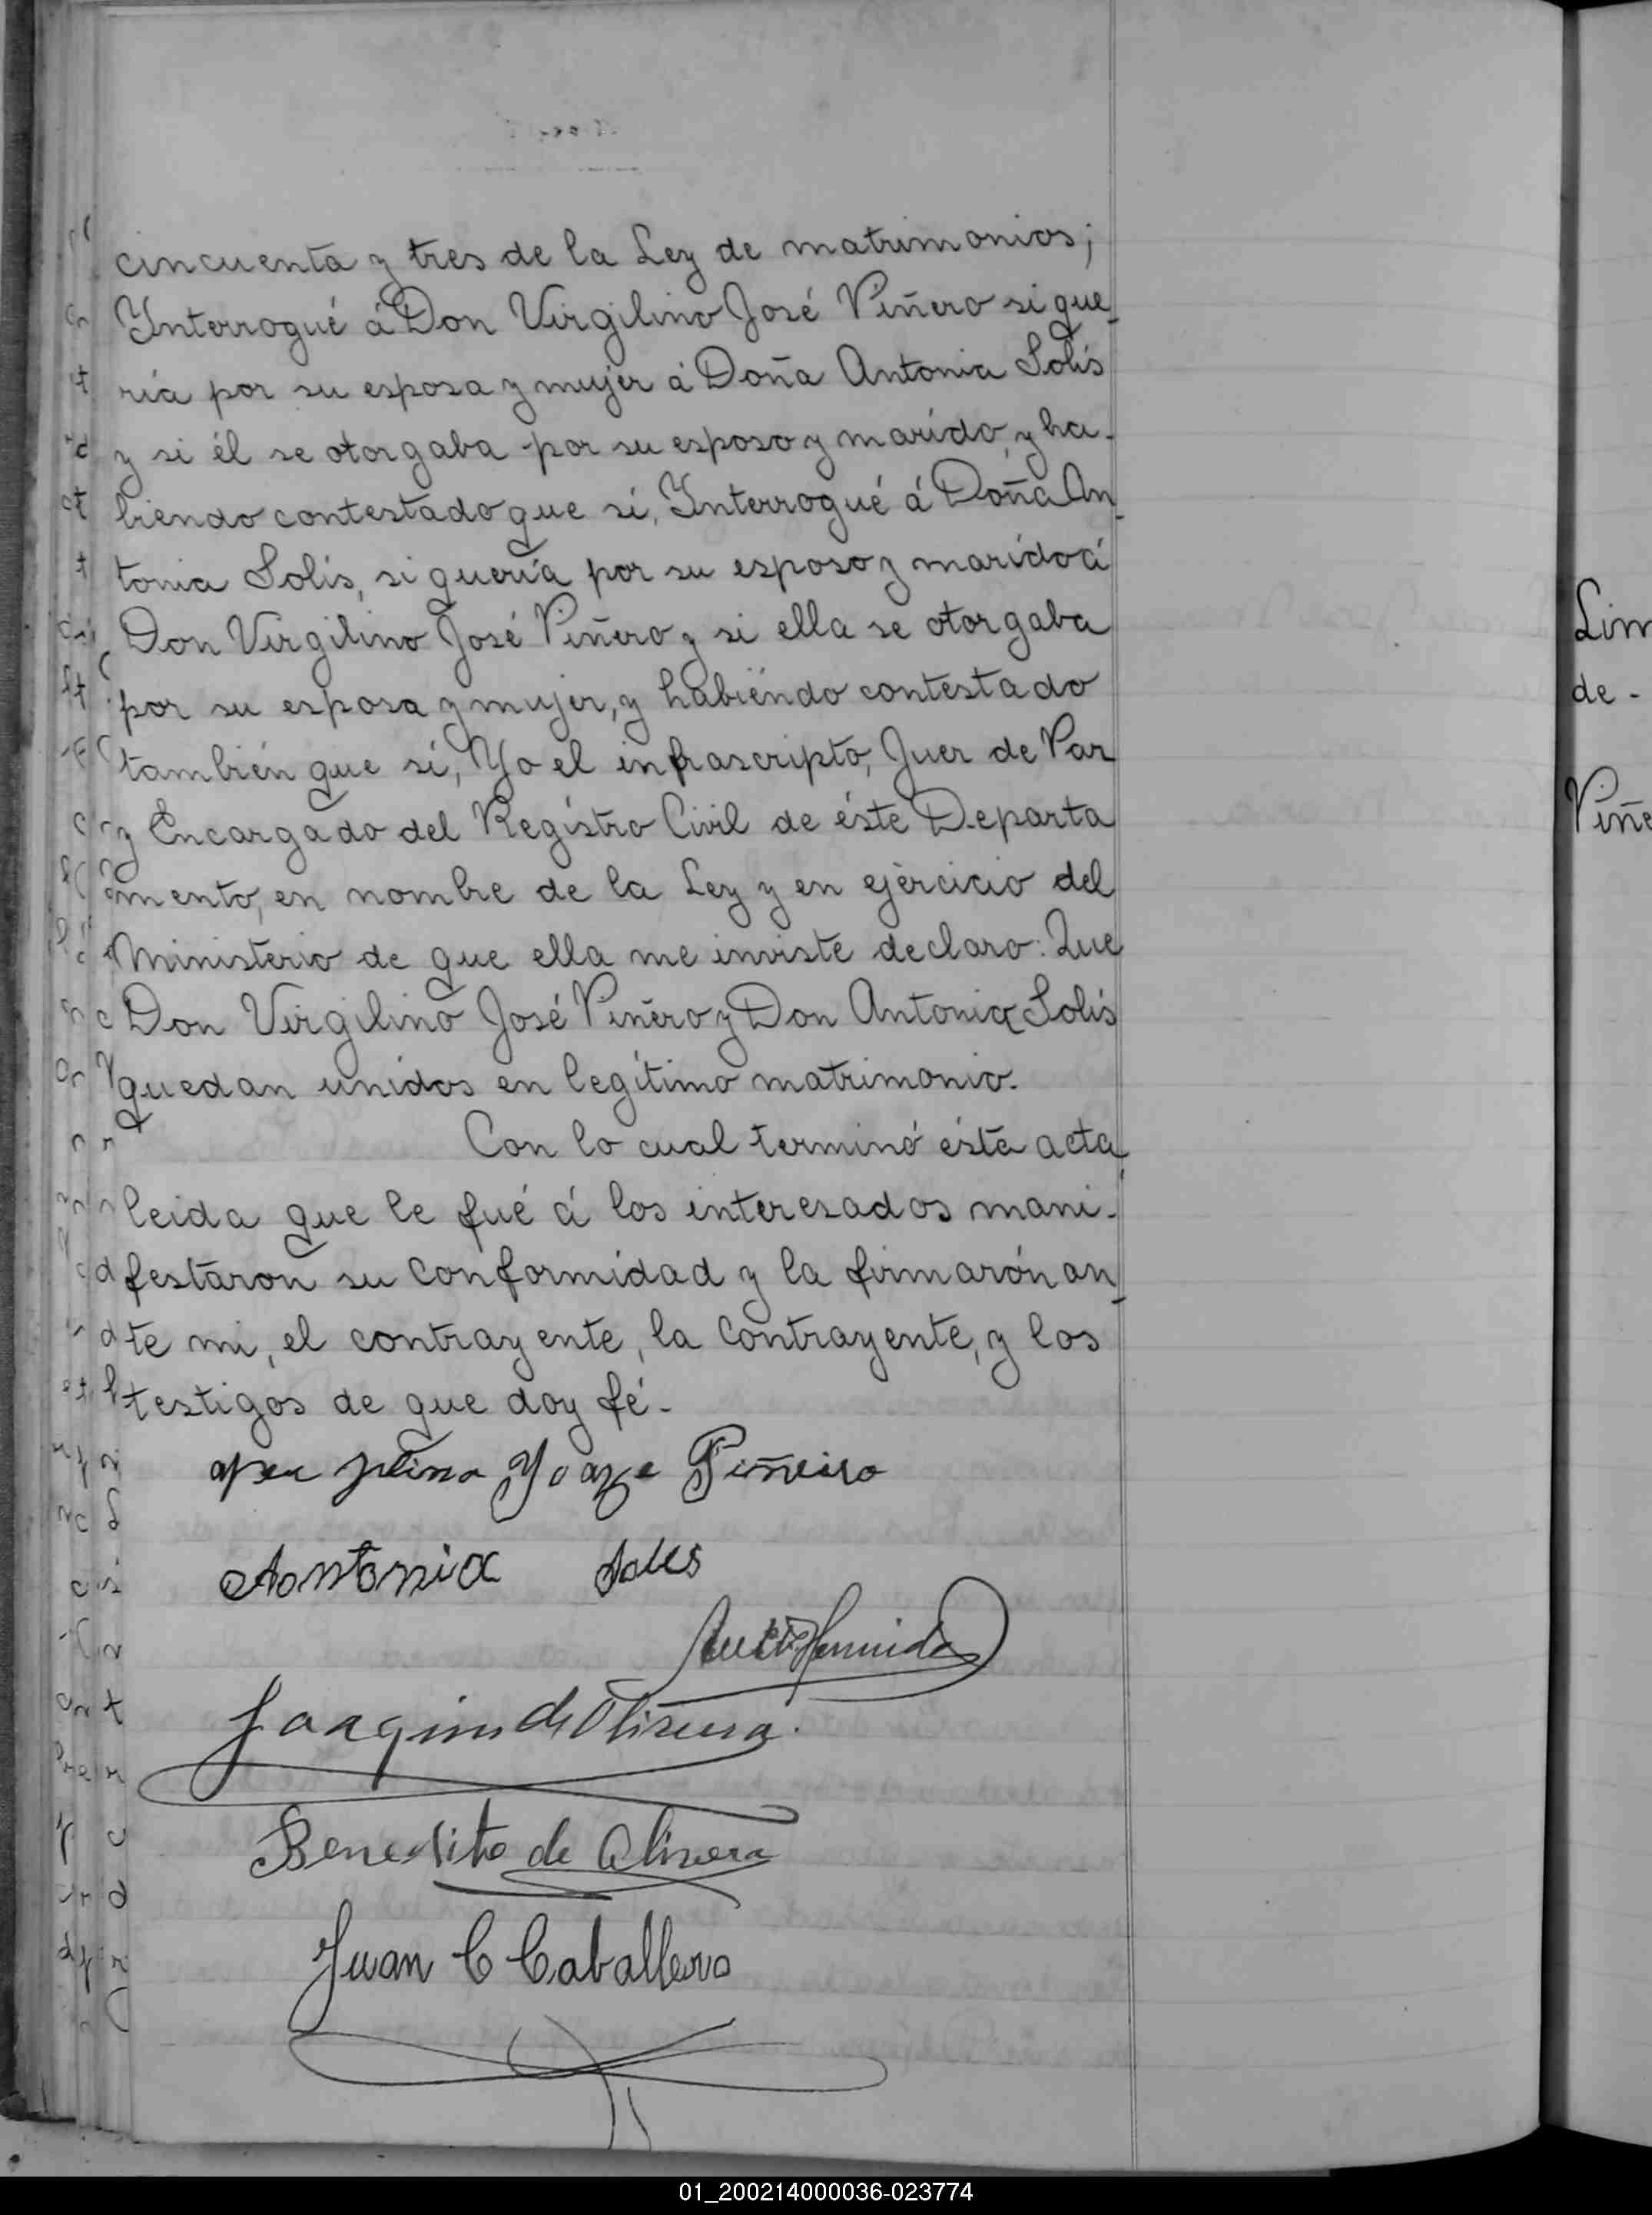 cincuenta y tres de la Ley de matrimonios;
Ynterrogué á Don Virgilino José Viñero si que-
ría por su esposa y mujer á Doña Antonia Solís
y si él se otorgaba por su esposo y marido, y ha-
biendo contestado que sí, Ynterrogué á Doña An-
tonia Solís, si quería por su esposo y marido á
Don Virgilino José Viñero y si ella se otorgaba
por su esposa y mujer, y habiéndo contestado
también que sí, Yo el infrascripto, Juez de Paz
y Encargado del Regístro Civil de éste Departa
mento, en nombre de la Ley y en ejércicio del
Ministerio de que ella me inviste declaro: Que
Don Virgilino José Viñero y Don Antonia Solís
quedan unidos en legítimo matrimonio.
Con lo cual terminó ésta acta
leida que le fué á los interesados mani-
festáron su conformidad y la firmarón an-
te mi, el contrayente, la contrayente, y los
testigos de que doy fé.-
Piñeiro
Antonia Solis
Joaquin de Olivera.
Benedito de Olivera
Juan C Caballero
Lim
de -
Viñe
01_200214000036-023774